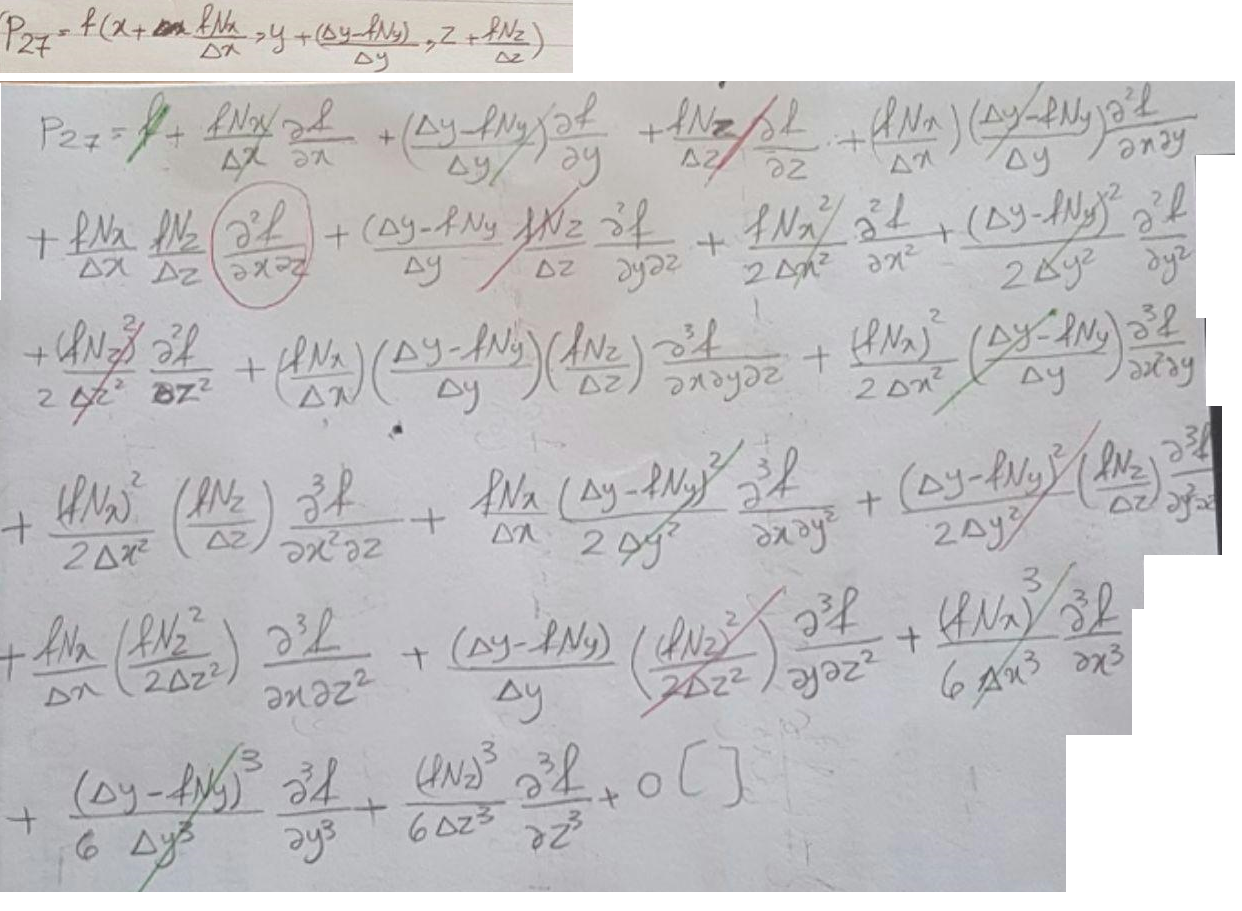 P₂₇ = f(x + fNx/Δx , y + (Δy-fNy)/Δy , z + fNz/Δz)
P₂₇ = f + fNx/Δx ∂f/∂x + (Δy-fNy)/Δy ∂f/∂y + fNz/Δz ∂f/∂z + (fNx/Δx) (Δy-fNy)/Δy ∂²f/∂x∂y
+ fNx/Δx fNz/Δz ∂²f/∂x∂z + (Δy-fNy/Δy fNz/Δz ∂²f/∂y∂z + fNx²/2Δx² ∂²f/∂x² + (Δy-fNy)²/2Δy² ∂²f/∂y²
+ (fNz)²/2Δz² ∂²f/∂z² + (fNx/Δx)(Δy-fNy/Δy)(fNz/Δz) ∂³f/∂x∂y∂z + (fNx)²/2Δx² (Δy-fNy/Δy) ∂³f/∂x²∂y
+ (fNx)²/2Δx² (fNz/Δz) ∂³f/∂x²∂z + fNx/Δx (Δy-fNy)²/2Δy² ∂³f/∂x∂y² + (Δy-fNy)²/2Δy² (fNz/Δz) ∂³f/∂y²∂z
+ fNx/Δx (fNz²/2Δz²) ∂³f/∂x∂z² + (Δy-fNy)/Δy ((fNz)²/2Δz²) ∂³f/∂y∂z² + (fNx)³/6Δx³ ∂³f/∂x³
+ (Δy-fNy)³/6Δy³ ∂³f/∂y³ + (fNz)³/6Δz³ ∂³f/∂z³ + 0[ ]